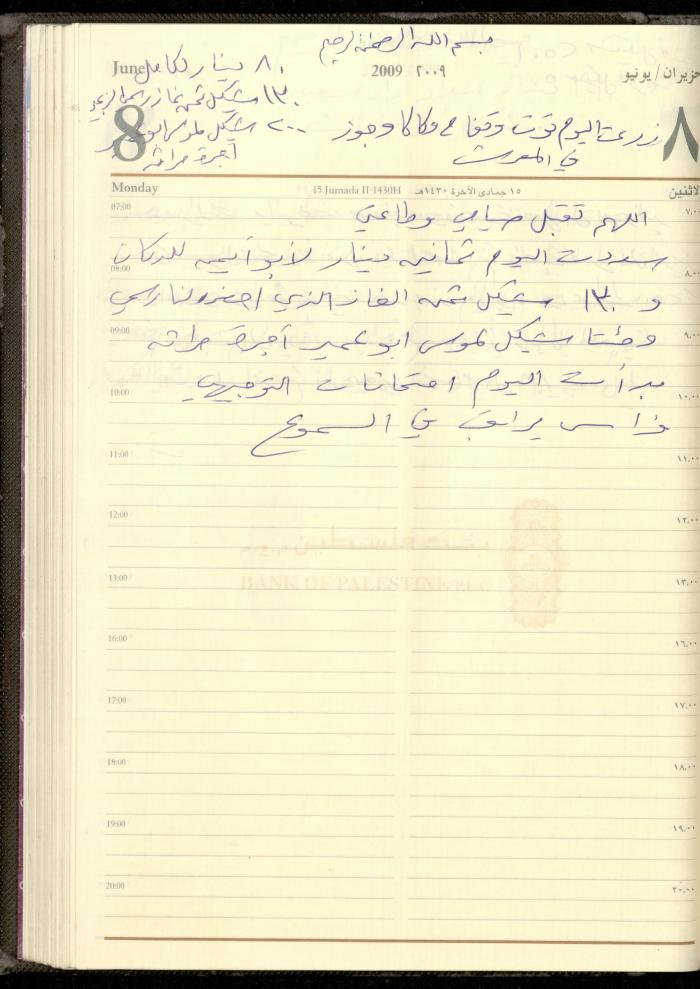 بسم الله الرحمن الرحيم
June
2009 ٢٠٠٩
حزيران / يونيو
8
٨
٨٠ دينار لكامل
١٣٠ شيكل ثمن غاز رسمي
٢٠٠ شيكل لموسى ابو عمير
أجرة حراثه
زرعت اليوم توت وقفا وجوز
في المعرش
Monday
15 Jumada II 1430H
١٥ جمادى الآخرة ١٤٣٠هـ
الاثنين
اللهم تقبل صيامي وطاعتي
سددت اليوم ثمانيه دينار لأبو أيمن للدكان
و ١٣٠ شيكل ثمن الغاز الذي احضره لنا رسمي
ومئتا شيكل لموسى ابو عمير أجرة حراثه
بدأت اليوم امتحانات التوجيهي
فراس يراقب في السموع
07:00 ٧,٠٠
08:00 ٨,٠٠
09:00 ٩,٠٠
10:00 ١٠,٠٠
11:00 ١١,٠٠
12:00 ١٢,٠٠
13:00 ١٣,٠٠
16:00 ١٦,٠٠
17:00 ١٧,٠٠
18:00 ١٨,٠٠
19:00 ١٩,٠٠
20:00 ٢٠,٠٠
BANK OF PALESTINE P.L.C